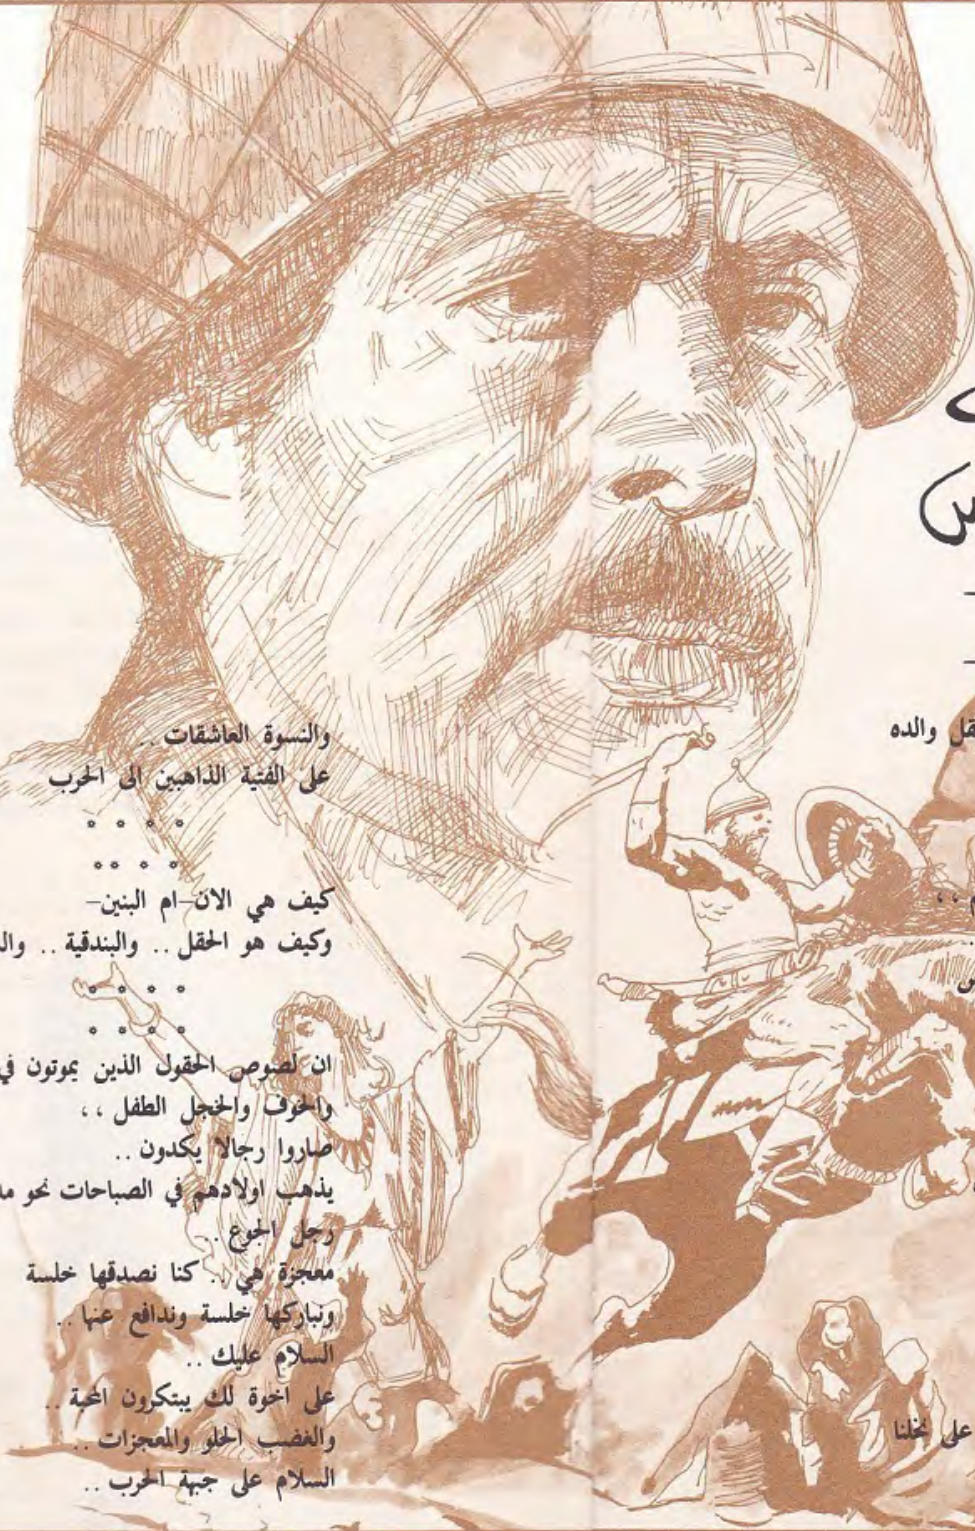 والده
على نخلنا
والنسوة العاشقات ..
على الفتية الذاهبين الى الحرب
كيف هي الان–ام البنين–
وكيف هو الحقل .. والبندقية ..
ان لصوص الحقول الذين يموتون في
والخوف والخجل الطفل ،،
صاروا رجالا يكدون ..
يذهب اولادهم في الصباحات نحو
رجل الجوع ..
معجزة هي .. كنا نصدقها خلسة
ونباركها خلسة وندافع عنها ..
السلام عليك ..
على اخوة لك يبتكرون المحبة ..
والغضب الحلو والمعجزات ..
السلام على جبهة الحرب ..